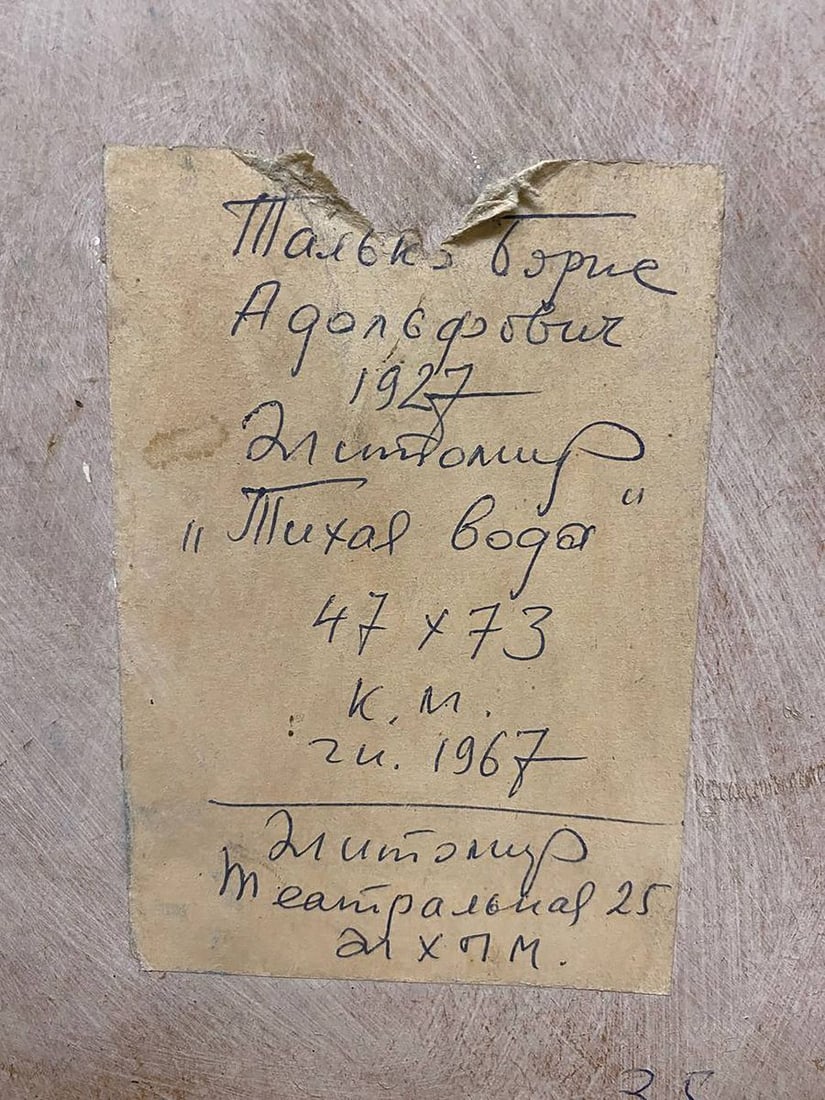 Талько Борис
Адольфович
1927
Житомир
"Тихая вода"
47 x 73
к. м.
г и. 1967
Житомир
Театральная 25
Ж Х П М.
35